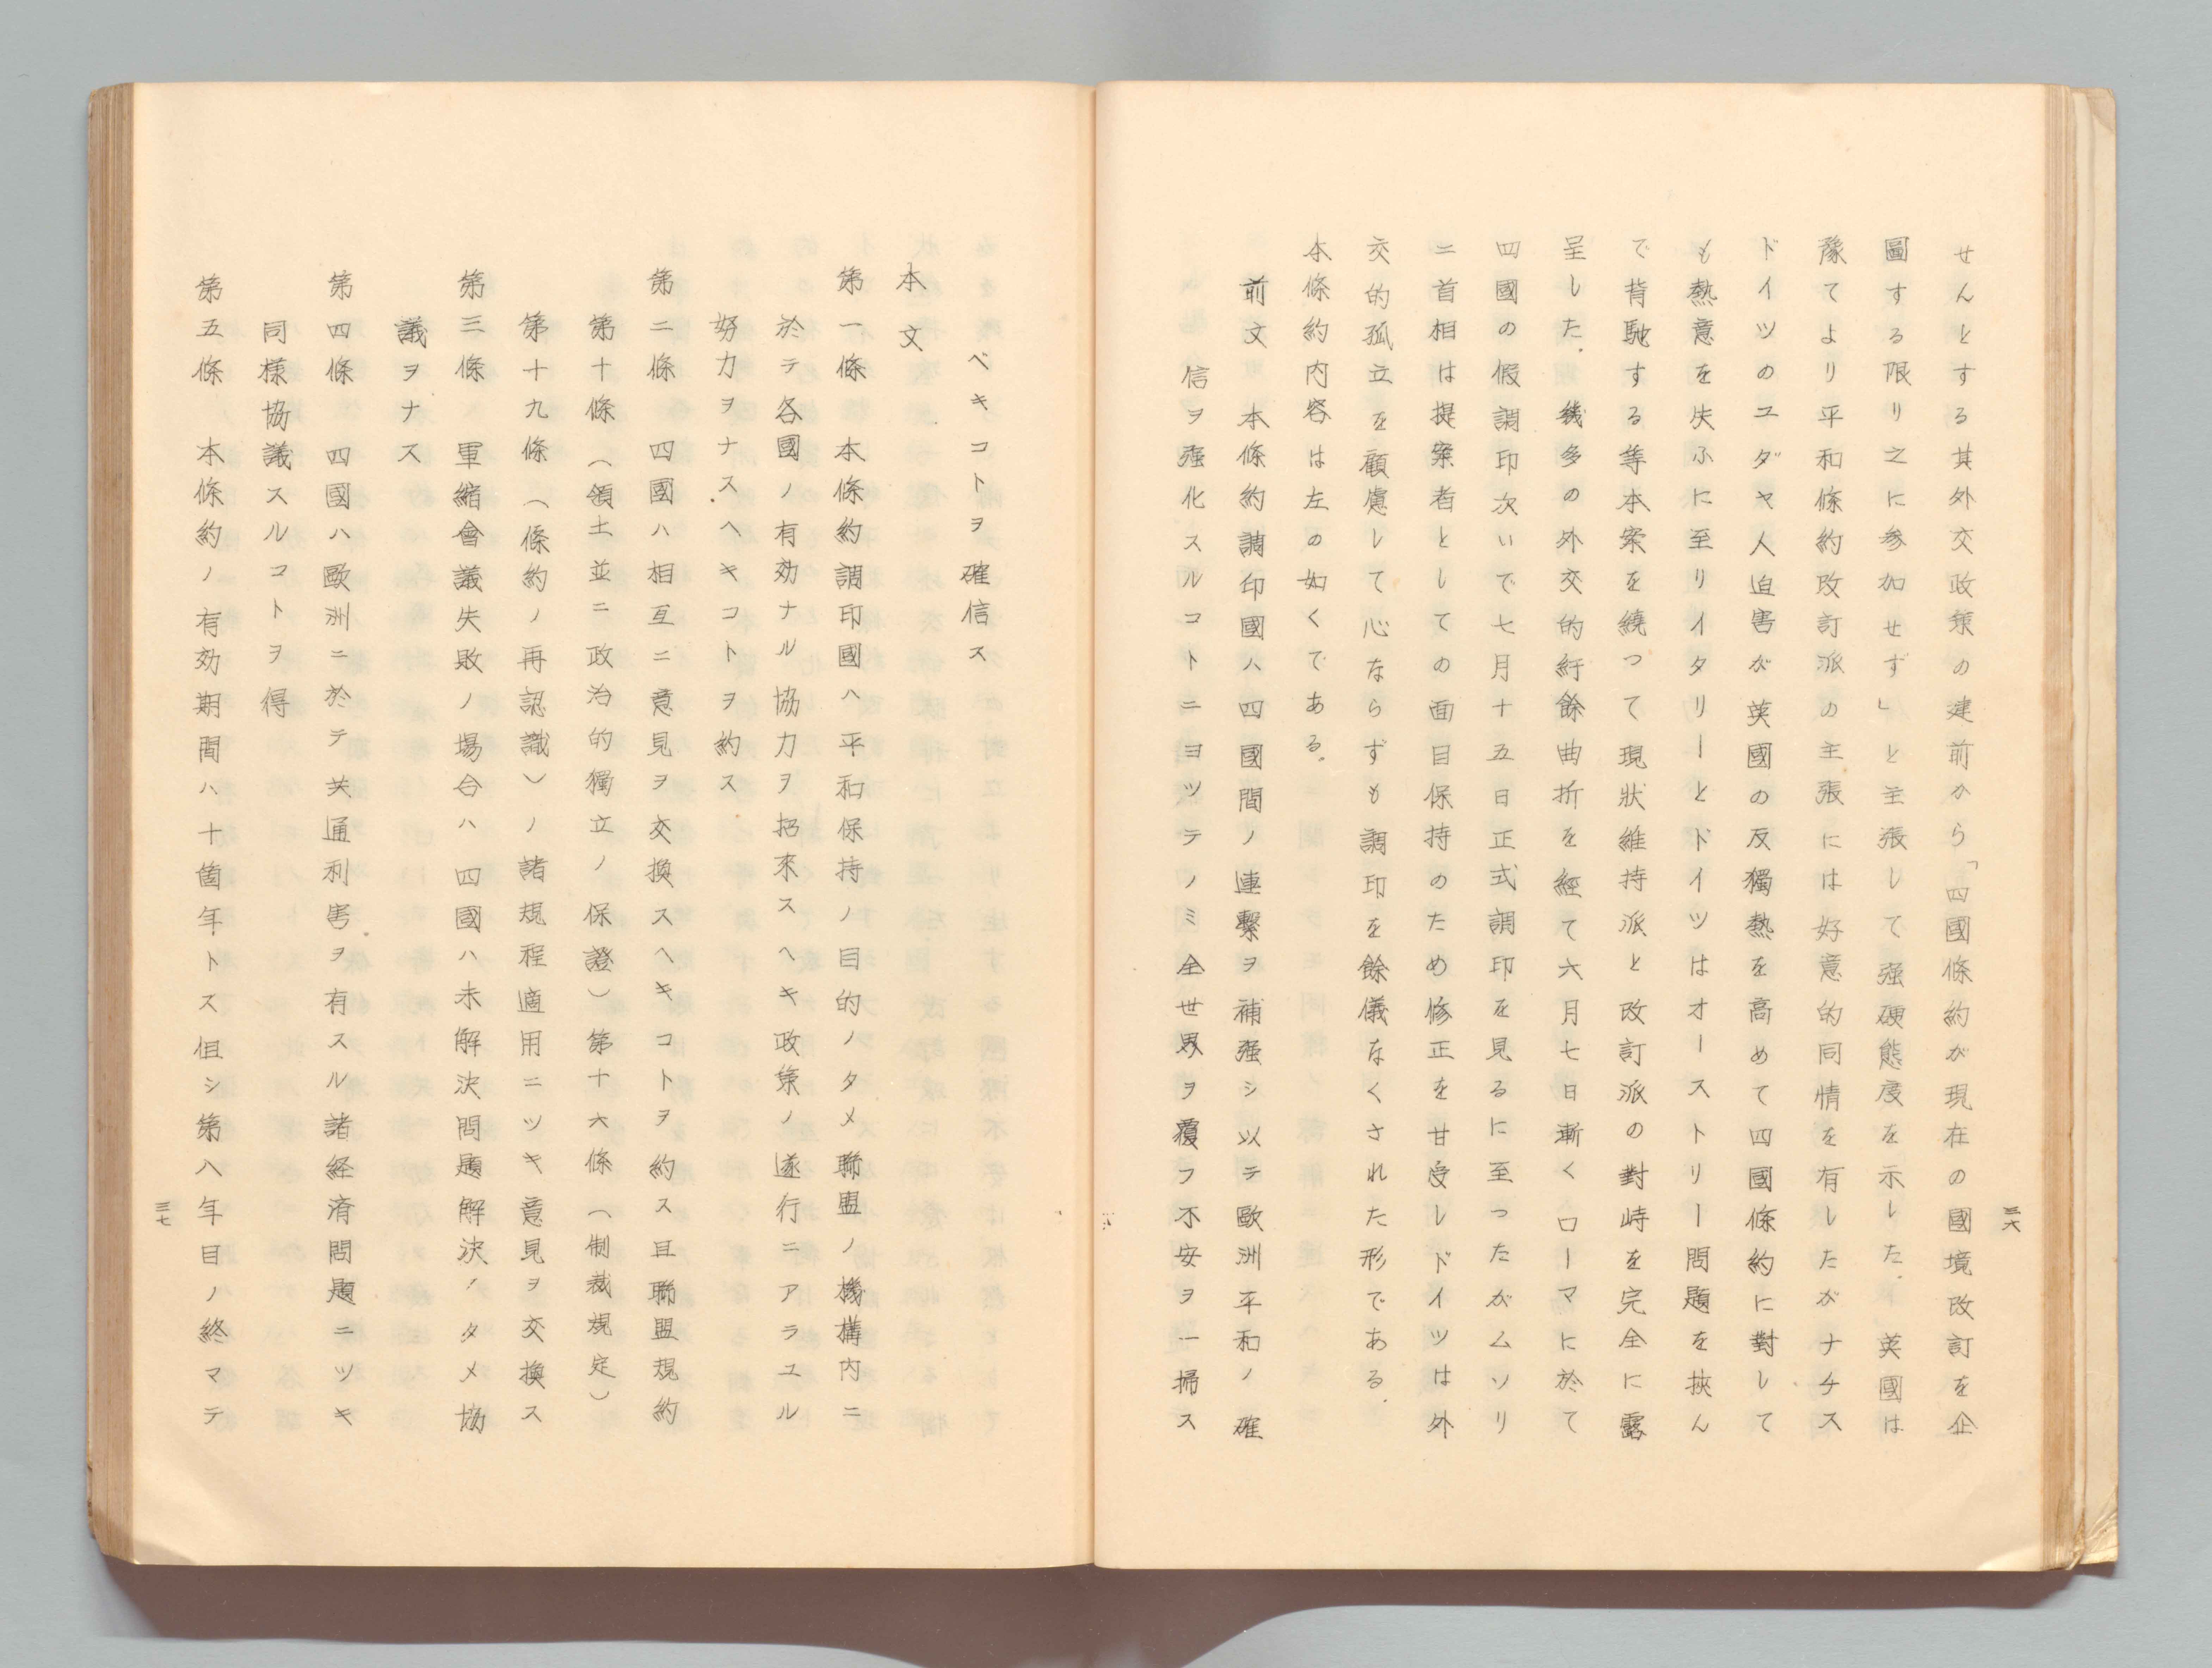 三六
せんとする其外交政策の建前から「四國條約が現在の國境改訂を企
圖する限り之に参加せず」と主張して强硬態度を示した．英國は
豫てより平和條約改訂派の主張には好意的同情を有したがナチス
ドイツのユダヤ人迫害が英國の反獨熱を高めて四國條約に對して
も熱意を失ふに至りイタリーとドイツはオーストリー問題を挾ん
で背馳する等本案を繞つて現狀維持派と改訂派の對峙を完全に露
呈した．幾多の外交的紆餘曲折を経て六月七日漸くローマに於て
四國の假調印次いで七月十五日正式調印を見るに至つたがムソリ
ニ首相は提案者としての面目保持のため修正を甘受しドイツは外
交的孤立を顧慮して心ならずも調印を餘儀なくされた形である．
本條約内容は左の如くである．
前文　本條約調印國ハ四國間ノ連繫ヲ補强シ以テ歐洲平和ノ確
信ヲ强化スルコトニヨツテノミ全世界ヲ覆フ不安ヲ一掃ス
ベキコトヲ確信ス
本文
第一條　本條約調印國ハ平和保持ノ目的ノタメ聯盟ノ機構内ニ
於テ各國ノ有効ナル協力ヲ招來スヘキ政策ノ遂行ニアラユル
努力ヲナスヘキコトヲ約ス
第二條　四國ハ相互ニ意見ヲ交換スヘキコトヲ約ス且聯盟規約
第十條（領土並ニ政治的獨立ノ保證）第十六條（制裁規定）
第十九條（條約ノ再認識）ノ諸規程適用ニツキ意見ヲ交換ス
第三條　軍縮會議失敗ノ場合ハ四國ハ未解決問題解決ノタメ協
議ヲナス
第四條　四國ハ歐洲ニ於テ共通利害ヲ有スル諸経済問題ニツキ
同樣協議スルコトヲ得
第五條　本條約ノ有効期間ハ十箇年トス但シ第八年目ノ終マテ
三七